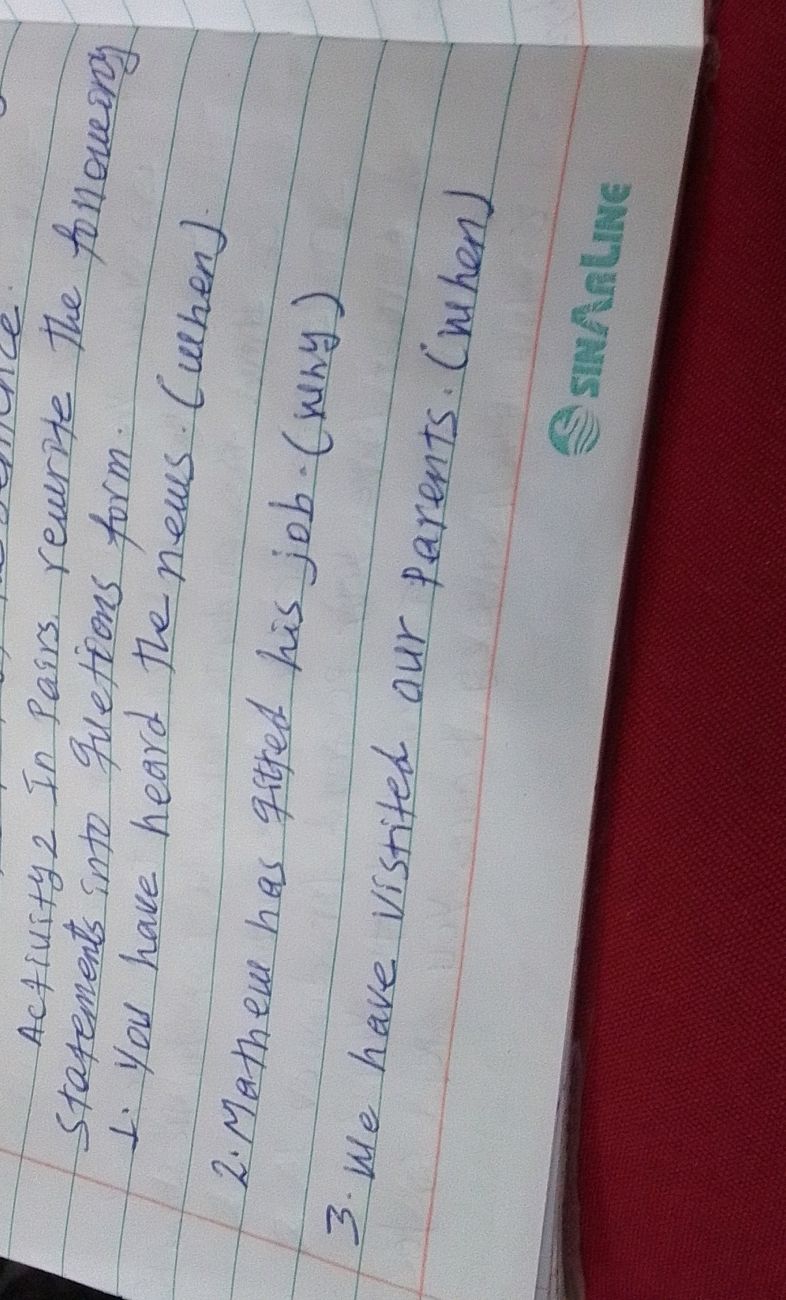 Activity 2 In Pairs, rewrite the following
Statements into quetions form.
1. You have heard the news. (when).
2. Mathew has qitted his job. (why)
3. We have visited our Parents. (when)
SINARLINE